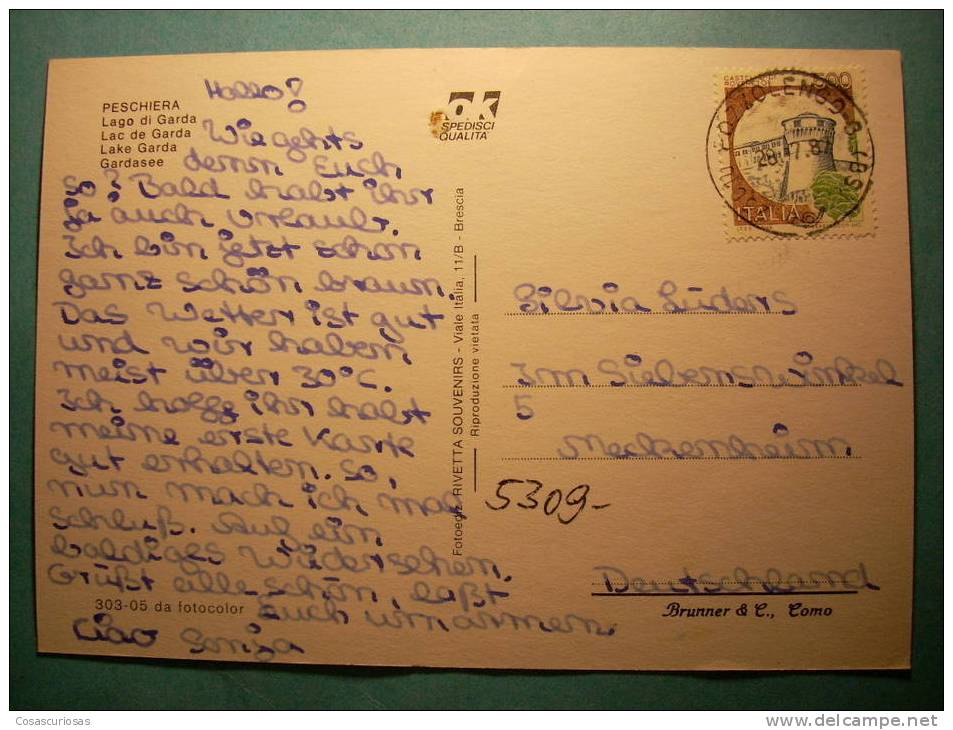 PESCHIERA
Lago di Garda
Lac de Garda
Lake Garda
Gardasee
Hallo!
Wie gehts
denn Euch
so? Bald habt ihr
ja auch Urlaub.
Ich bin jetzt schon
ganz schön braun.
Das Wetter ist gut
und wir haben
meist über 30°C.
Ich hoffe ihr habt
meine erste Karte
gut erhalten. So,
nun mach ich mal
schluß. Auf ein
baldiges Wiedersehen.
Grüßt alle schön, laßt
Euch umarmen.
Ciao Sonja
303-05 da fotocolor
OK
SPEDISCI
QUALITÀ
Fotoediz. RIVETTA SOUVENIRS - Viale Italia, 11/B - Brescia
Riproduzione vietata
500
ITALIA
28.7.87
Silvia Lüders
Im Siebenswinkel
5
Meckenheim
5309-
Deutschland
Brunner & C., Como
Cosascuriosas
www.delcampe.net